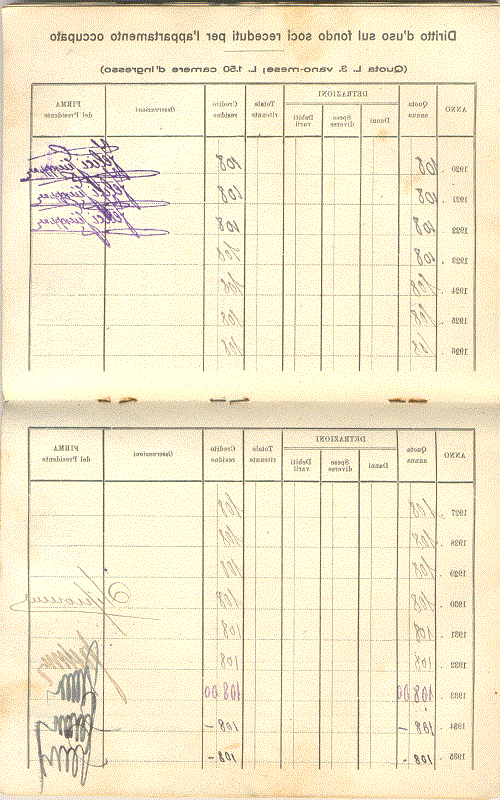 Diritto d'uso sul fondo soci receduti per l'appartamento occupato
(Quota L. 3. vano-mese; L. 1.50 camere d'ingresso)
ANNO Quota annua DETRAZIONI Danni Spese diverse Debiti varii Totale ritenute Credito residuo Osservazioni FIRMA del Presidente
1920 . 108 108
1921 . 108 108
1922 . 108 108
1923 . 108 108
1924 . 108 108
1925 . 108 108
1926 . 108 108
ANNO Quota annua DETRAZIONI Danni Spese diverse Debiti varii Totale ritenute Credito residuo Osservazioni FIRMA del Presidente
1927 . 108 108
1928 . 108 108
1929 . 108 108
1930 . 108 108
1931 . 108 108
1932 . 108 108
1933 . 108.00 108.00
1934 . 108 - 108 -
1935 . 108 - 108 -